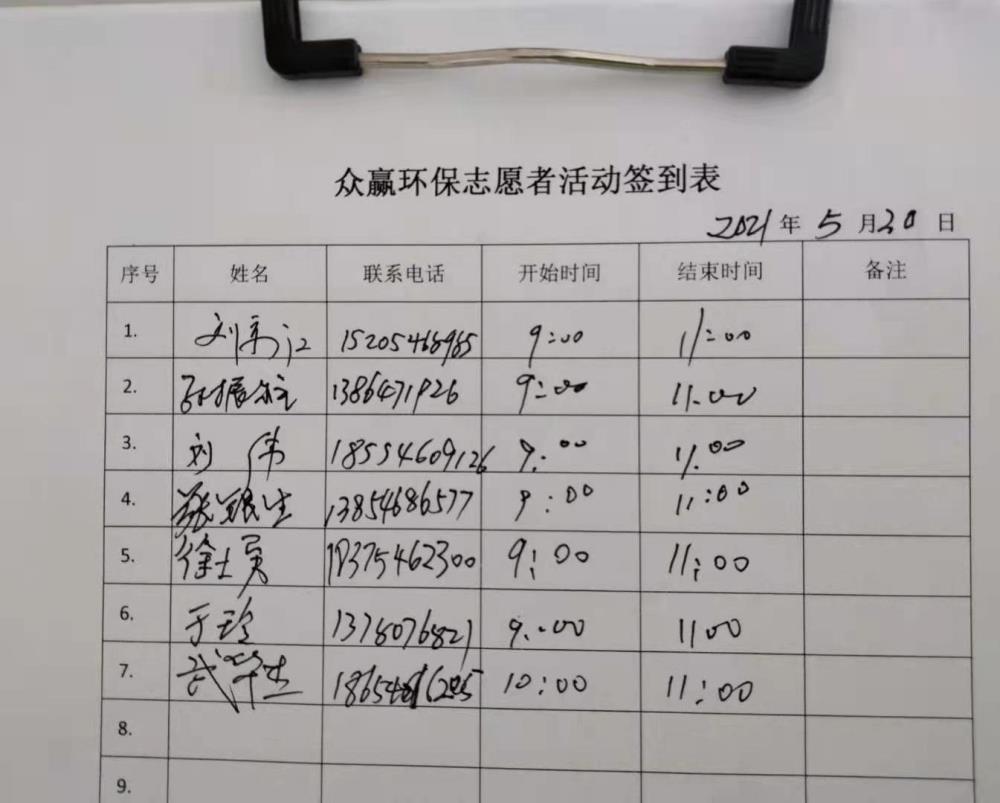 众赢环保志愿者活动签到表
2021年5月20日
序号 姓名 联系电话 开始时间 结束时间 备注
1. 刘 15205468985 9:00 11:00
2. 9:00 11:00
3. 刘伟 18554609126 9:00 11:00
4. 张银生 13854686577 9:00 11:00
5. 徐士英 9:00 11:00
6. 于玲 9:00 1100
7. 武华杰 10:00 11:00
8.
9.